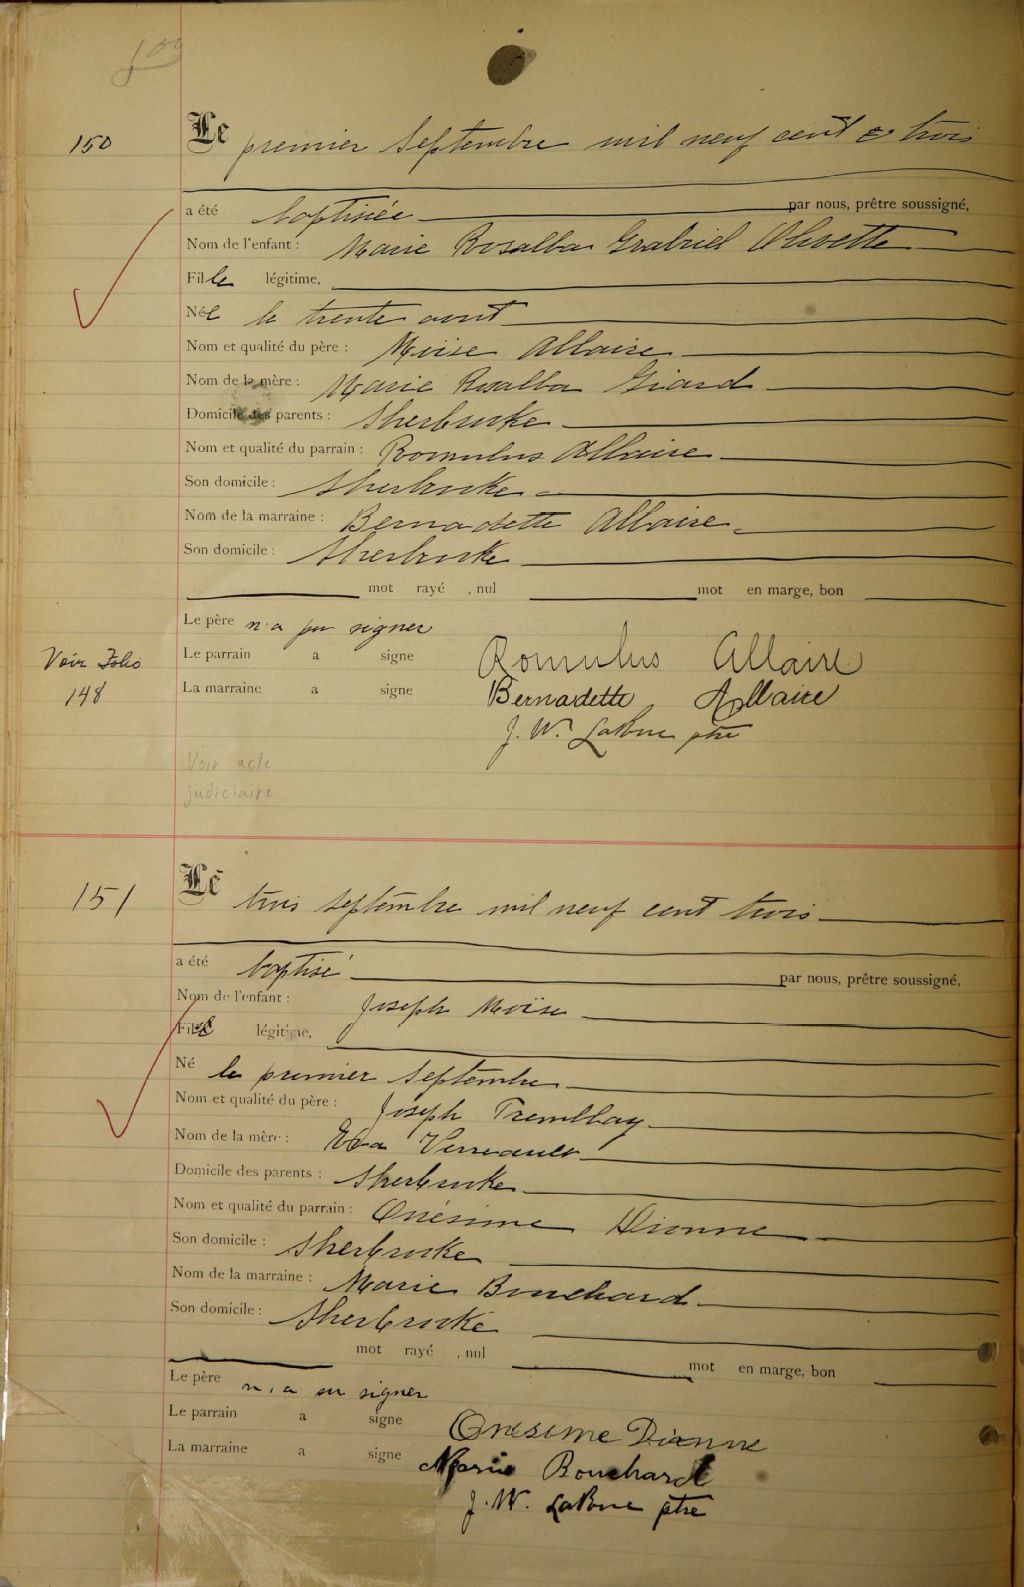 150
Le premier Septembre mil neuf cent & trois
a été baptisée par nous, prêtre soussigné,
Nom de l'enfant : Marie Rosalba Grabriel Olivette
Fille légitime,
Née le trente aout
Nom et qualité du père : Moise Allaire
Nom de la mère : Marie Rosalba Giard
Domicile des parents : Sherbrooke
Nom et qualité du parrain : Romulus Allaire
Son domicile : Sherbrooke
Nom de la marraine : Bernadette Allaire
Son domicile : Sherbrooke
mot rayé , nul mot en marge, bon
Le père n'a pu signer
Le parrain a signe Romulus Allaire
Voir Folio
148
La marraine a signe Bernadette Allaire
J. W. LaRue ptre
Voir acte
judiciaire
151
Le trois septembre mil neuf cent trois
a été baptisé par nous, prêtre soussigné,
Nom de l'enfant : Joseph Moïse
Fils légitime,
Né le premier Septembre
Nom et qualité du père : Joseph Tremblay
Nom de la mère : Eva Verreault
Domicile des parents : Sherbrooke
Nom et qualité du parrain : Onésime Dionne
Son domicile : Sherbrooke
Nom de la marraine : Marie Bouchard
Son domicile : Sherbrooke
mot rayé , nul mot en marge, bon
Le père n'a su signer
Le parrain a signe Onesime Dionne
La marraine a signe Marie Bouchard
J. W. LaRue ptre